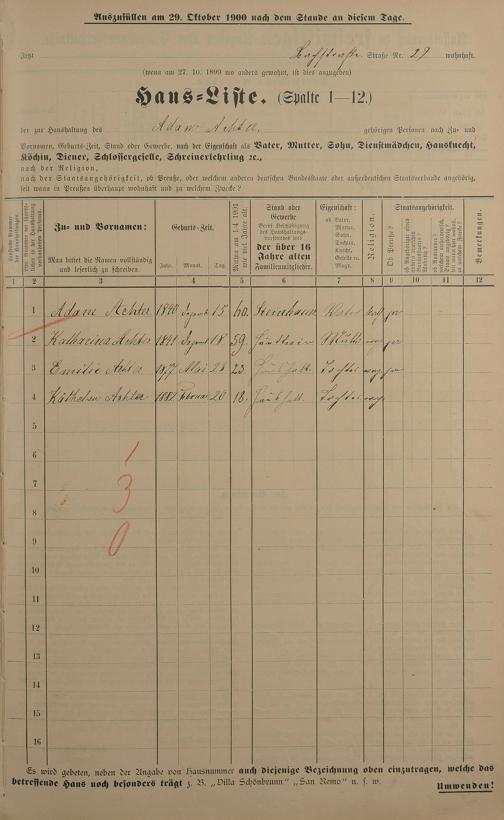 Auszufüllen am 29. Oktober 1900 nach dem Stande an diesem Tage.
Jetzt Bachstraße Straße Nr. 29 wohnhaft.
(wenn am 27. 10. 1899 wo anders gewohnt, ist dies anzugeben)
Haus-Liste. (Spalte 1—12.)
der zur Haushaltung des Adam Achter gehörigen Personen nach Zu- und
Vornamen, Geburts-Zeit, Stand oder Gewerbe, nach der Eigenschaft als Vater, Mutter, Sohn, Dienstmädchen, Hausknecht,
Köchin, Diener, Schlossergeselle, Schreinerlehrling ꝛc.,
nach der Religion,
nach der Staatsangehörigkeit, ob Preuße, oder welchem anderen deutschen Bundesstaate oder außerdeutschen Staatsverbande angehörig,
seit wann in Preußen überhaupt wohnhaft und zu welchem Zwecke?
Zu- und Vornamen:
Man bittet die Namen vollständig
und leserlich zu schreiben.
Geburts-Zeit.
Jahr. Monat. Tag.
Mithin am 1.4 1901
wie viel Jahre alt.
Stand oder
Gewerbe
der über 16
Jahre alten
Familienmitglieder.
Eigenschaft:
ob Vater,
Mutter,
Sohn,
Tochter,
Knecht,
Geselle u.
Magd.
Religion.
Staatsangehörigkeit.
Ob Preuße?
Bemerkungen.
1 2 3 4 5 6 7 8 9 10 11 12
1 Adam Achter 1840 August 15 60. Vater
2 Katharina Achter 1841 August 18 59. Mutter
3 Emilie Achter 1877 Mai 28 23 Haushalt. Tochter
4 Achter 1882 Februar 20 18. Haushalt. Tochter
5
6
1
7
3
8
0
9
10
11
12
13
14
15
16
Es wird gebeten, neben der Angabe von Hausnummer auch diejenige Bezeichnung oben einzutragen, welche das
betreffende Haus noch besonders trägt z. B. „Villa Schönbrunn“ „San Remo“ u. s. w.
Umwenden!